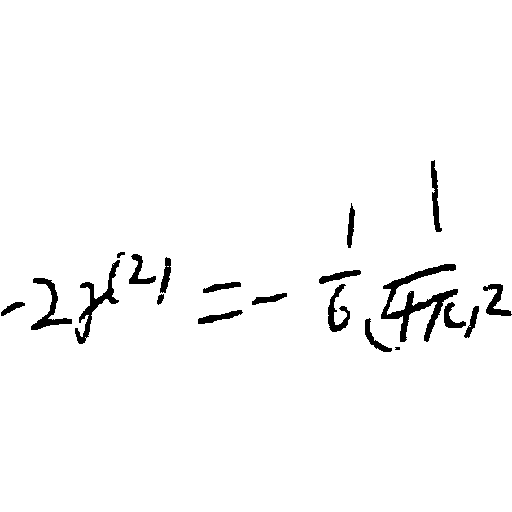 $-2\gamma^{(2)} = -\frac{1}{6}\frac{1}{(4\pi)^2}$